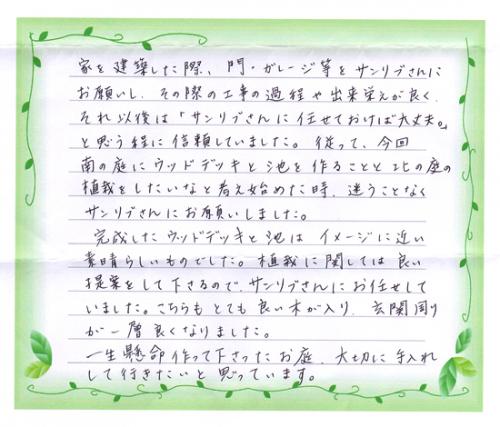 家を建築した際、門・ガレージ等をサンリブさんに
お願いし、その際の工事の過程や出来栄えが良く、
それ以後は「サンリブさんに任せておけば大丈夫。」
と思う程に信頼していました。従って、今回
南の庭にウッドデッキと池を作ることと北の庭の
植栽をしたいなと考え始めた時、迷うことなく
サンリブさんにお願いしました。
完成したウッドデッキと池は イメージに近い
素晴らしいものでした。植栽に関しては良い
提案をして下さるので、サンリブさんにお任せして
いました。こちらもとても良い木が入り、玄関周り
が一層良くなりました。
一生懸命作って下さったお庭、大切に手入れ
して行きたいと思っています。